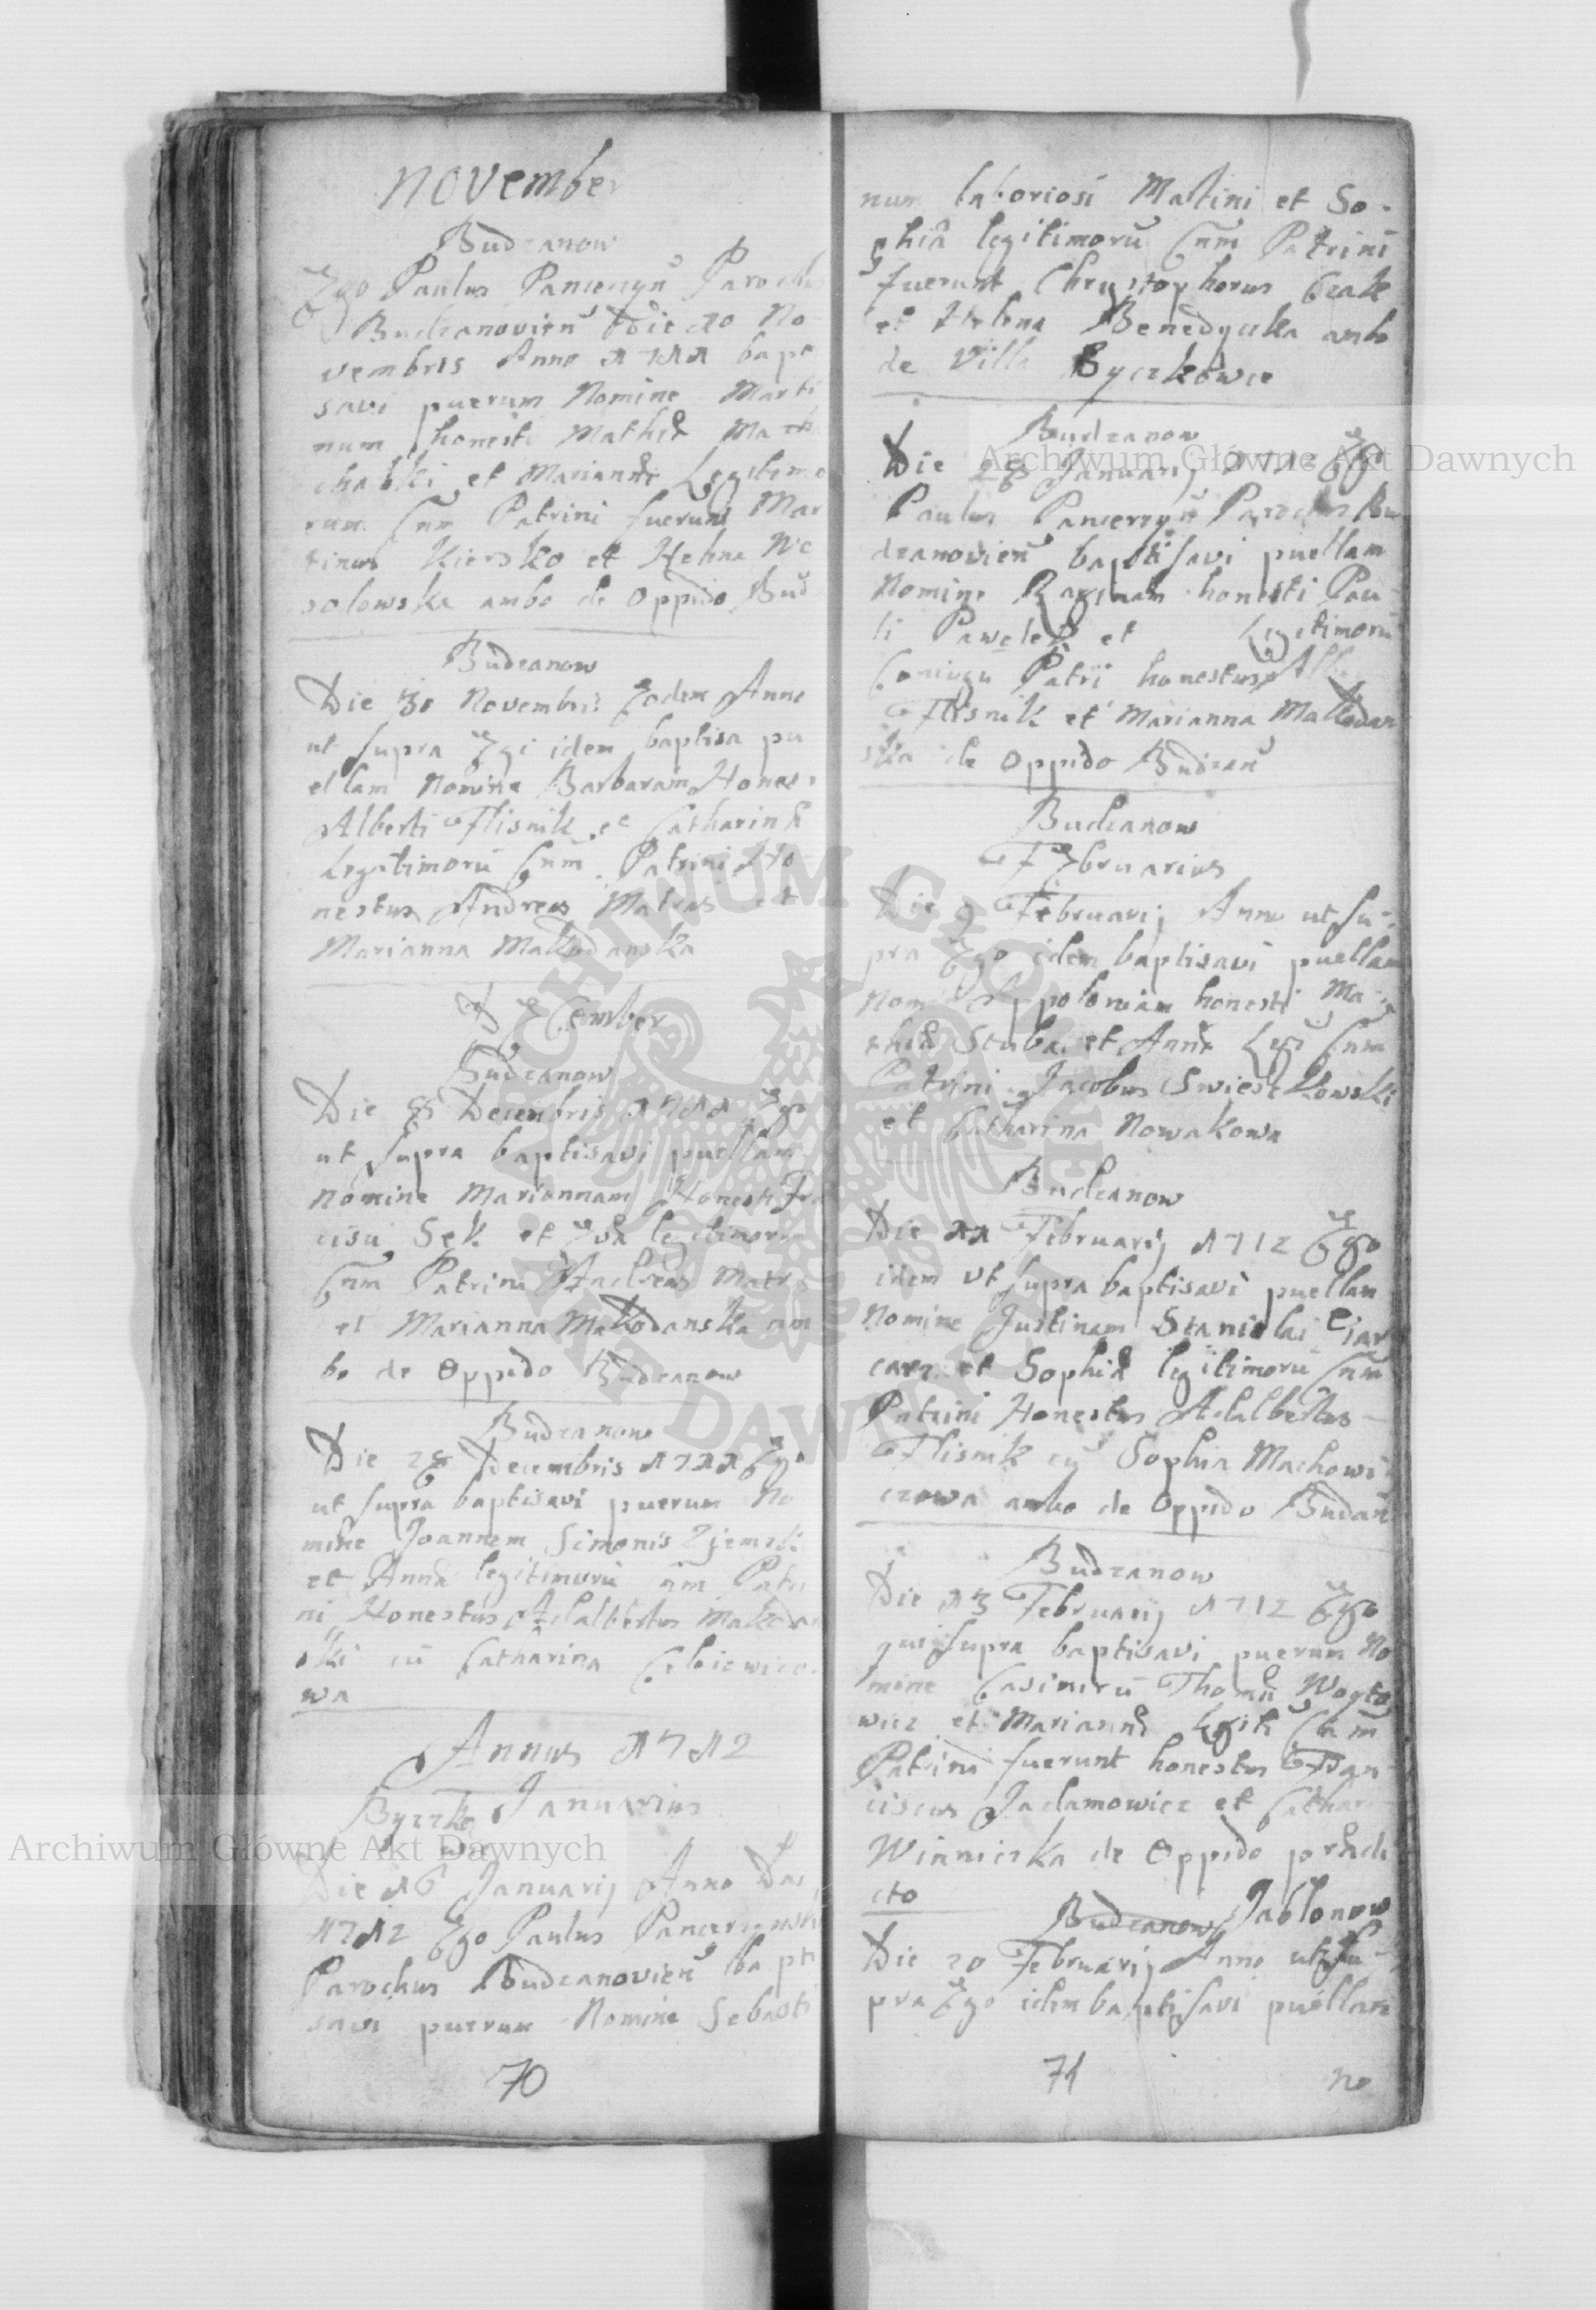 November
Budzanow
Ego Paulus Pancerzyn̄ Parochus
Budzanovien̄ Die 10 No
vembris Anno 1711 bapti
savi puerum Nomine Marti
num honesti Mathiæ Mach
chalski et Mariannæ Legitimo
rum Cnm Patrini fuerunt Mar
tinus Kiersko et Helena We
solowska ambo de Oppido Bud
Budzanow
Die 30 Novembris Eodem Anno
ut supra Ego idem baptisa pu
ellam Nomine Barbaram Hones
Alberti Flisnik et Catharinæ
Legitimorū Cnm Patrini Ho
nestus Andreas Matras et
Marianna Makodanska
December
Budzanow
Die 8 Decembris 1711 Ego
ut supra baptisavi puellam
Nomine Mariannam Honesti Fra
cisci Sek et Evæ legitimoru
Cnm Patrini Andreas Matras
et Marianna Makodanska am
bo de Oppido Budzanow
Budzanow
Die 28 Decembris 1711 Ego
ut supra baptisavi puerum No
mine Joannem Simonis Ziemski
et Annæ legitimorū nm Patri
ni Honestus Adalbertus Makodan
ski cū Catharina
wa
Annus 1712
Byczko Januarius
Die 16 Januarij Anno Dni
1712 Ego Paulus Pancerzynski
Parochus Budzanovien̄ bapti
savi puerum Nomine Sebasti
70
num laboriosi Matini et So-
phiæ legitimorū Cnm Patrini
fuerunt Chrystophorus Czak
et Helena Benedycka ambo
de Villa Byczkowce
Budzanow
Die 28 Januarij 1712 Ego
Paulus Pancerzyn̄ Parochus Bu
dzanovien̄ baptisavi puellam
Nomine Reginam honesti Pau-
li Pawelek et Legitimorū
Coniugu Patrii honestus Alb
Flisnik et Marianna Makodan
ska de Oppido Budzan̄
Budzanow
Februarius
Die 9 Februarij Anno ut su-
pra Ego idem baptisavi puellam
Nom Appoloniam honesti Ma-
thiæ Stuba et Annæ Legī Cnm
Patrini Jacobus Swiestkowski
et Catharina Nowakowa
Budzanow
Die 11 Februarij 1712 Ego
idem ut supra baptisavi puellam
Nomine Justinam Stanislai Ciar
carz et Sophiæ legitimorū Cnm
Patrini Honestus Adalbertus
Flisnik cū Sophia Machowi
czowa ambo de Oppido Budan̄
Budzanow
Die 13 Februarij 1712 Ego
qui supra baptisavi puerum No
mine Casimirū Thomæ Woyto
wicz et Mariannæ Legiti Cnm
Patrini fuerunt honestus Fran
ciscus Jadamowicz et Cathari
Winniczka de Oppido prædi
cto
Budzanow Jablonow
Die 20 Februarij Anno ut su-
pra Ego idem baptisavi puellam
71
no
Archiwum Główne Akt Dawnych
Archiwum Główne Akt Dawnych
ARCHIWUM GŁÓWNE AKT DAWNYCH